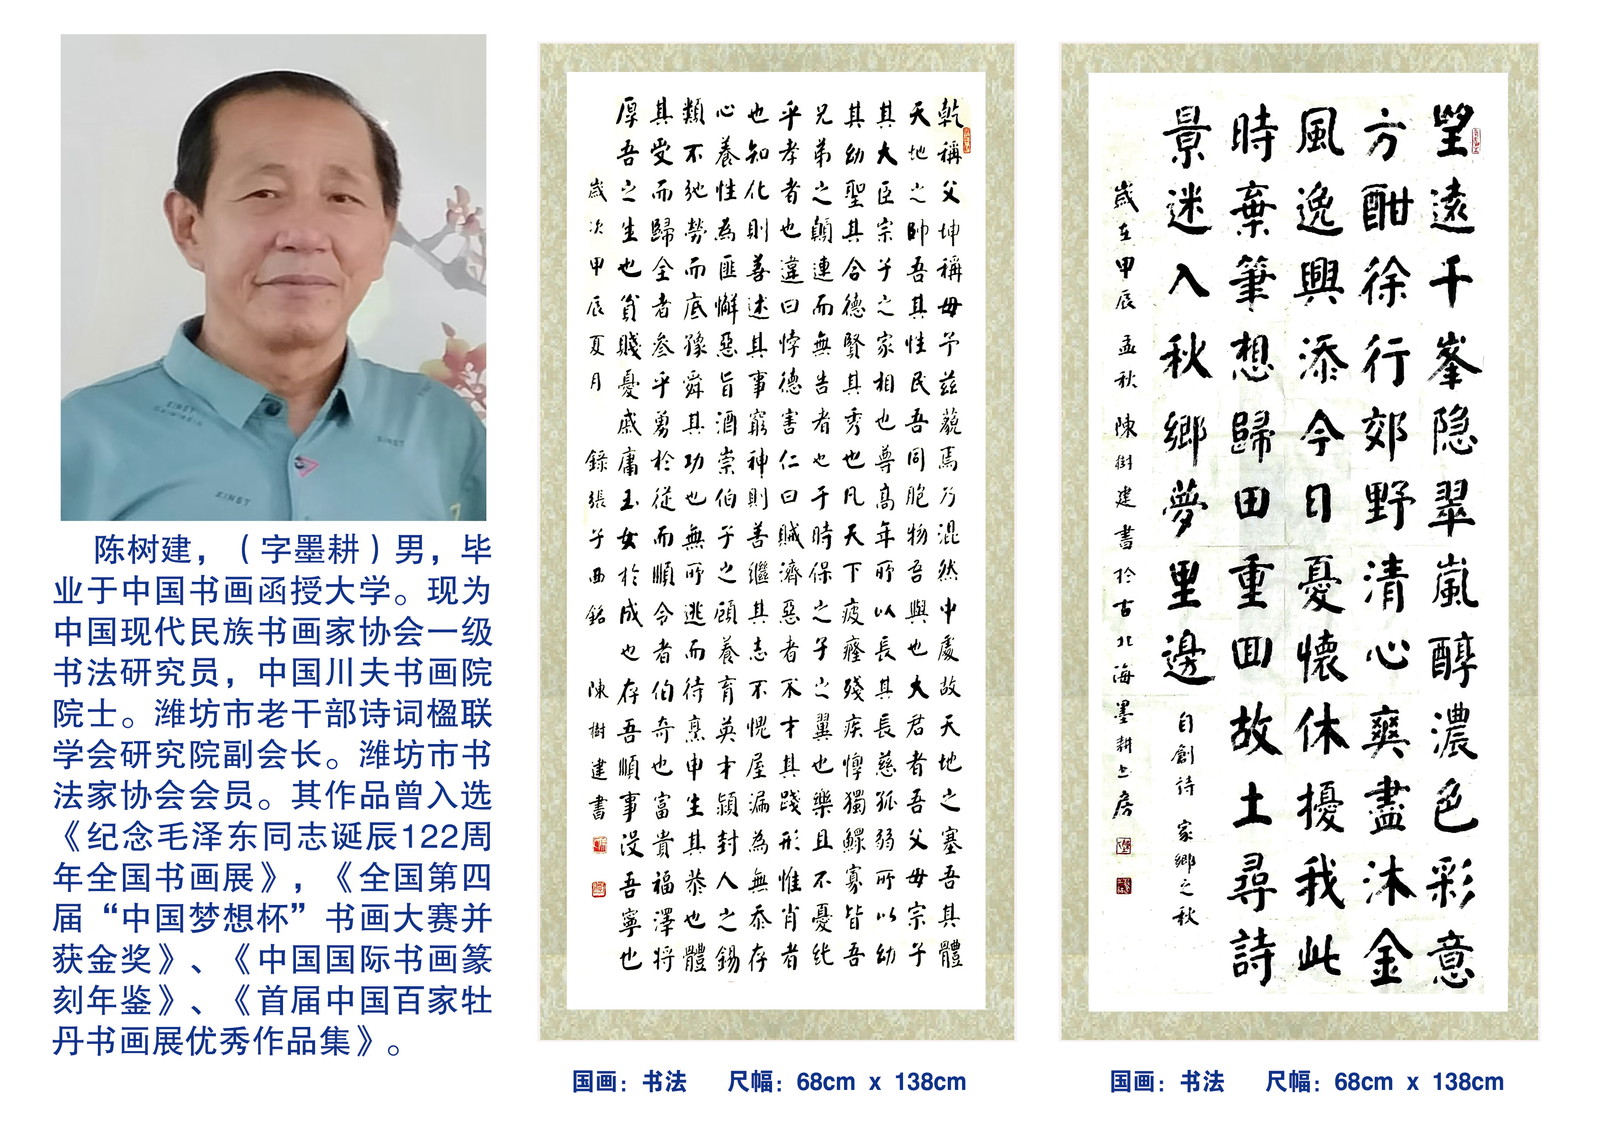 陈树建，（字墨耕）男，毕
业于中国书画函授大学。现为
中国现代民族书画家协会一级
书法研究员，中国川夫书画院
院士。潍坊市老干部诗词楹联
学会研究院副会长。潍坊市书
法家协会会员。其作品曾入选
《纪念毛泽东同志诞辰122周
年全国书画展》，《全国第四
届“中国梦想杯”书画大赛并
获金奖》、《中国国际书画篆
刻年鉴》、《首届中国百家牡
丹书画展优秀作品集》。
乾稱父坤稱母予茲藐焉乃混然中處故天地之塞吾其體
天地之帥吾其性民吾同胞物吾與也大君者吾父母宗子
其大臣宗子之家相也尊高年所以長其長慈孤弱所以幼
其幼聖其合德賢其秀也凡天下疲癃殘疾惸獨鰥寡皆吾
兄弟之顛連而無告者也于時保之子之翼也樂且不憂純
乎孝者也違曰悖德害仁曰賊濟惡者不才其踐形惟肖者
也知化則善述其事窮神則善繼其志不愧屋漏為無忝存
心養性為匪懈惡旨酒崇伯子之顧養育英才潁封人之錫
類不弛勞而底豫舜其功也無所逃而待烹申生其恭也體
其受而歸全者參乎勇於從而順令者伯奇也富貴福澤將
厚吾之生也貧賤憂戚庸玉女於成也存吾順事沒吾寧也
歲次甲辰夏月 錄張子西銘 陳樹建書
国画：书法 尺幅：68cm x 138cm
望遠千峯隐翠嵐醇濃色彩意
方酣徐行郊野清心爽盡沐金
風逸興添今日憂懷休擾我此
時棄筆想歸田重回故土尋詩
景迷入秋鄉夢里邊
自創詩 家鄉之秋
歲在甲辰孟秋陳樹建書於古北海墨耕上房
国画：书法 尺幅：68cm x 138cm